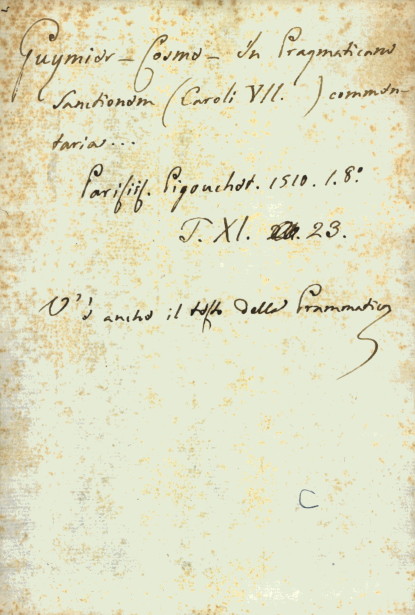 Guymier - Cosma - In Pragmaticam
Sanctionem (Caroli VII. ) commen-
taria...
Parisiis. Pigouchet. 1510. 1. 8.º
T. XI. 23.
V'è anche il testo della Prammatica
C